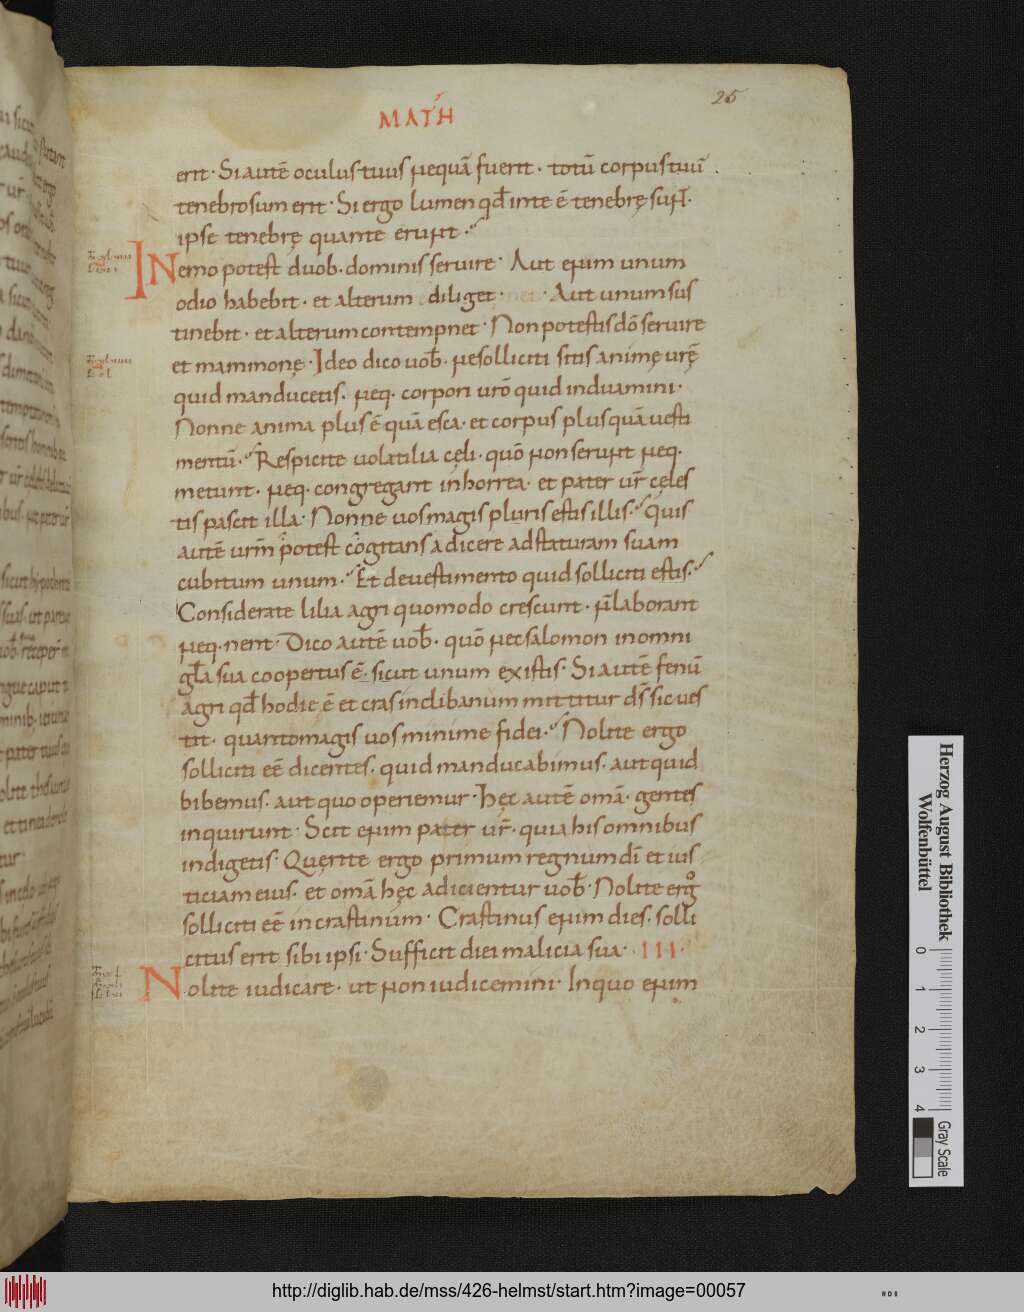 MATH
25
erit· Si autē oculus tuus nequā fuerit· totū corpus tuū
tenebrosum erit· Si ergo lumen qđ in te ē tenebrę sunt·
ipse tenebrę quante erunt·
Nemo potest duob· dominis servire· Aut enim unum
odio habebit· et alterum diliget· Aut unum sus
tinebit· et alterum contempnet· Non potestis dō servire
et mammonę· Ideo dico vob· ne solliciti sitis animę vrę̄
quid manducetis· neq· corpori vrō quid induamini·
Nonne anima plus ē quā esca· et corpus plus quā vesti
mentū· Respicite volatilia cęli· quō non serunt neq·
metunt· neq· congregant in horrea· et pater vr̄ cęles
tis pascit illa· Nonne vos magis pluris estis illis· quis
autē vrm̄ potest cogitans adicere ad staturam suam
cubitum unum· Et de vestimento quid solliciti estis·
Considerate lilia agri quomodo crescunt· n̄ laborant
neq· nent· Dico autē vob· quō nec salomon in omni
gła sua coopertus ē· sicut unum ex istis· Si autē fenū
agri qđ hodie ē et cras in clibanum mittitur d̄s sic ves
tit· quanto magis vos minime fidei· Nolite ergo
solliciti eē dicentes· quid manducabimus· aut quid
bibemus· aut quo operiemur· Hęc autē omā· gentes
inquirunt· Scit enim pater vr̄· quia his omnibus
indigetis· Quęrite ergo primum regnum dī et ius
ticiam eius· et omā hęc adicientur vob· Nolite ergo
solliciti eē in crastinum· Crastinus enim dies· solli
citus erit sibi ipsi· Sufficit diei malicia sua· III·
Nolite iudicare· ut non iudicemini· In quo enim
Herzog August Bibliothek
Wolfenbüttel
0 1 2 3 4
Gray Scale
http://diglib.hab.de/mss/426-helmst/start.htm?image=00057